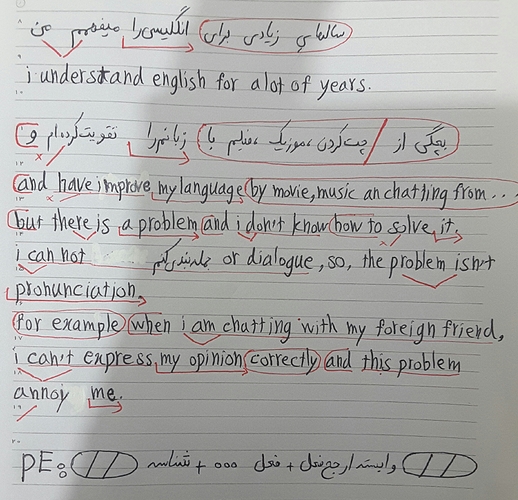 سالهای زیادی برای انگلیسی را میفهمم من
i understand english for a lot of years.
بچگی از / چت کردن، موزیک، فیلم با زبانم را تقویت کرده ام و
and have improve my language by movie, music an chatting from...
but there is a problem and i don't know how to solve it.
i can not جمله بندی کنم or dialogue, so, the problem isn't
pronunciation.
for example when i am chatting with my foreign friend,
i can't express my opinion correctly and this problem
annoy me.
PE: وابسته فعل + فعل ... + شناسه